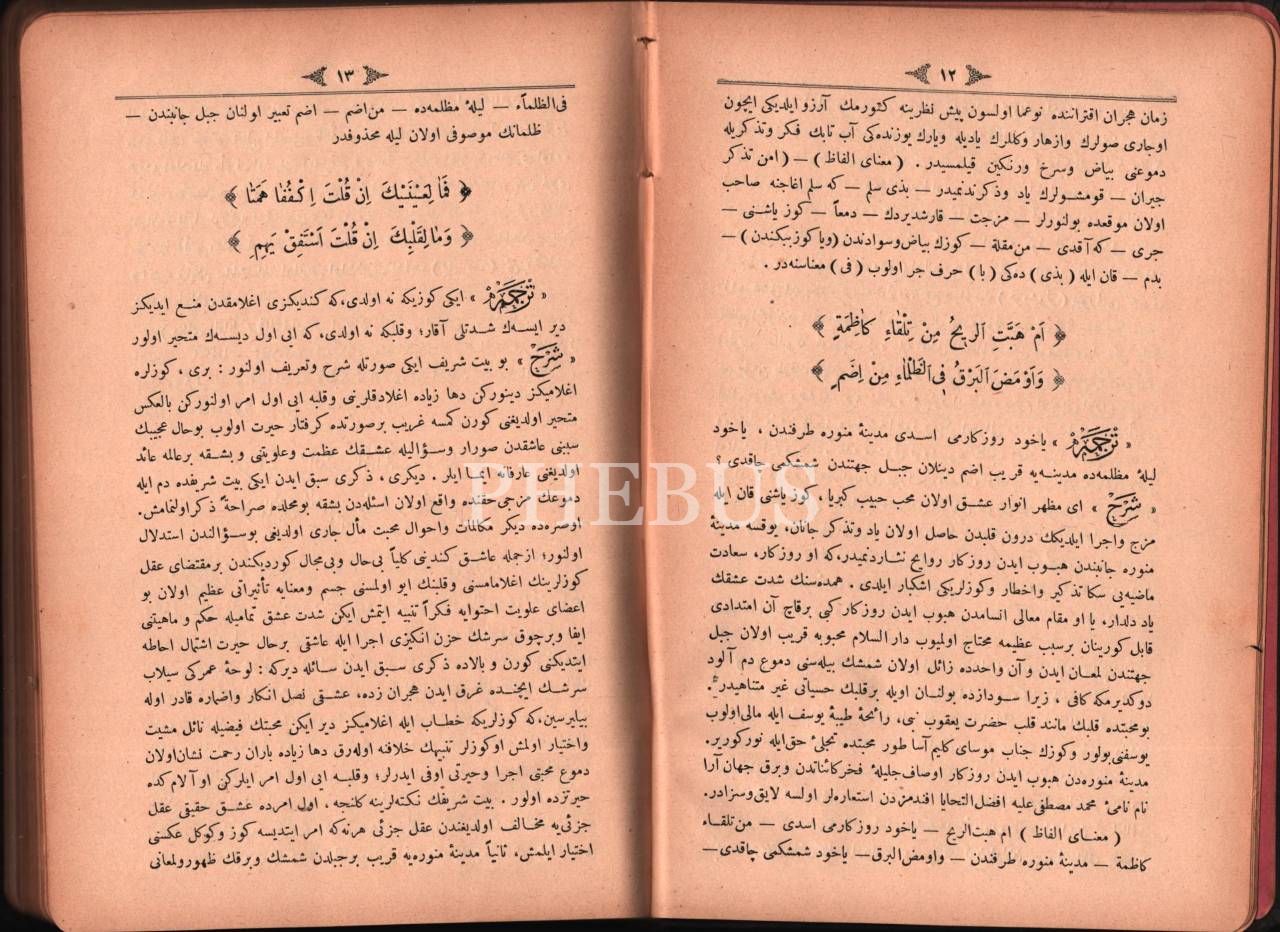 ١٢
زمان هجران اقتراننده نوعما اولسون پيش نظرينه كتورمك آرزو ايلديكى ايچون
اوجارى صولرك وازهار وكللرك ياديله ويارك يوزنده‌كى آب تابك فكر وتذكريله
دموعنى بياض وسرخ ورنكين قيلمسيدر . ( معناى الفاظ ) — ( امن تذكر
جيران — قومشولرك ياد وذكرندنميدر — بذى سلم — كه سلم اغاجنه صاحب
اولان موقعده بولنورلر — مزجت — قارشديردك — دمعاً — كوز ياشنى —
جرى — كه آقدى — من مقلة — كوزك بياض وسوادندن ( ويا كوز ببكندن ) —
بدم — قان ايله ( بذى ) ده‌كى ( با ) حرف جر اولوب ( فى ) معناسنه‌در .
﴿ اَمْ هَبَّتِ الرِّيحُ مِنْ تِلْقَاءِ كَاظِمَةٍ ﴾
﴿ وَاَوْمَضَ الْبَرْقُ فِى الظَّلْمَاءِ مِنْ اِضَمِ ﴾
« ترجمه » ياخود روزكارمى اسدى مدينۀ منوره طرفندن ، ياخود
ليلۀ مظلمه‌ده مدينه‌يه قريب اضم دينلان جبل جهتندن شمشكمى چاقدى ؟
« شرح » اى مظهر انوار عشق اولان محب حبيب كبريا ، كوز ياشنى قان ايله
مزج واجرا ايلديكك درون قلبدن حاصل اولان ياد وتذكر جانان، يوقسه مدينۀ
منوره جانبندن هبوب ايدن روزكار روايح نشار دنميدر،كه او روزكار، سعادت
ماضيه‌يى سكا تذكير واخطار وكوزلريكى اشكبار ايلدى . همده‌سنك شدت عشقك
ياد دلدار، يا او مقام معالى انسامدن هبوب ايدن روزكار كبى برقاچ آن امتدادى
قابل كورينان برسبب عظيمه محتاج اولميوب دار السلام محبوبه قريب اولان جبل
جهتندن لمعان ايدن وآن واحدده زائل اولان شمشك بيله‌سنى دموع دم آلود
دوكديرمكه كافى ، زيرا سودازده بولنان اويله برقلبك حسياتى غير متناهيدر .
بومحبتده قلبك مانند قلب حضرت يعقوب نبى، رائحۀ طيبۀ يوسف ايله مالى اولوب
يوسفنى بولور وكوزك جناب موساى كليم آسا طور محبتده تجلئ حق ايله نور كورير.
مدينۀ منوره‌دن هبوب ايدن روزكار اوصاف جليلۀ فخركائناتدن وبرق جهان آرا
نام نامئ محمد مصطفى عليه افضل التحايا افندمزدن استعاره‌لر اولسه لايق وسزادر.
( معناى الفاظ ) ام هبت الريح — ياخود روزكارمى اسدى — من تلقاء
كاظمة — مدينۀ منوره طرفندن — واومض البرق — ياخود شمشكمى چاقدى —
١٣
فى الظلماء — ليلۀ مظلمه‌ده — من اضم — اضم تعبير اولنان جبل جانبندن —
ظلمانك موصوفى اولان ليله محذوفدر
﴿ فَمَا لِعَيْنَيْكَ اِنْ قُلْتَ اكْفُفَا هَمَتَا ﴾
﴿ وَمَا لِقَلْبِكَ اِنْ قُلْتَ اسْتَفِقْ يَهِمِ ﴾
« ترجمه » ايكى كوزيكه نه اولدى،كه كنديكزى اغلامقدن منع ايديكز
دير ايسه‌ك شدتلى آقار؛ وقلبكه نه اولدى، كه ايى اول ديسه‌ك متحير اولور
« شرح » بو بيت شريف ايكى صورتله شرح وتعريف اولنور : برى ، كوزلره
اغلاميكز دينوركن دها زياده اغلادقلرينى وقلبه ايى اول امر اولنوركن بالعكس
متحير اولديغنى كورن كمسه غريب برصورتده كرفتار حيرت اولوب بوحال عجيبك
سببنى عاشقدن صورار وسؤاليله عشقك عظمت وعلويتنى و بشقه برعالمه عائد
اولديغنى عارفانه انها ايلر . ديكرى ، ذكرى سبق ايدن ايكى بيت شريفده دم ايله
دموعك مزجى حقنده واقع اولان اسئله‌دن بشقه بومحلده صراحةً ذكر اولنمامش.
اوصره‌ده ديكر مكالمات واحوال محبت مأل جارى اولديغى بوسؤالندن استدلال
اولنور؛ ازجمله عاشق كندينى كلياً بى حال وبى مجال كورديكندن برمقتضاى عقل
كوزلرينك اغلامامسنى وقلبنك ايو اولمسنى جسم ومعنايه تأثيراتى عظيم اولان بو
اعضاى علويت احتوايه فكراً تنبيه ايتمش ايكن شدت عشق تماميله حكم و ماهيتنى
ايفا وبرچوق سرشك حزن انكيزى اجرا ايله عاشقى برحال حيرت اشتمال احاطه
ايتديكنى كورن و بالاده ذكرى سبق ايدن سائله ديركه : لوحۀ عمركى سيلاب
سرشك ايچنده غرق ايدن هجران زده، عشقى نصل انكار واضماره قادر اوله
بيليرسين،كه كوزلريكه خطاب ايله اغلاميكز دير ايكن محبتك فيضيله نائل مشيت
واختيار اولمش اوكوزلر تنبيهك خلافنه اوله‌رق دها زياده باران رحمت نشان اولان
دموع محبتى اجرا وحيرتى اوفى ايدرلر؛ وقلبه ايى اول امر ايلركن او آلام كده
حيرتزده اولور . بيت شريفك نكته‌لرينه كلنجه ، اول امرده عشق حقيقى عقل
جزئى‌يه مخالف اولديغندن عقل جزئى هرنه‌كه امر ايتديسه كوز وكوكل عكسنى
اختيار ايلمش، ثانياً مدينۀ منوره‌يه قريب برجبلدن شمشك وبرقك ظهورولمعانى
PHEBUS